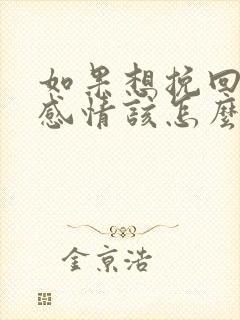 如果想挽回
感情该怎麼
金京浩